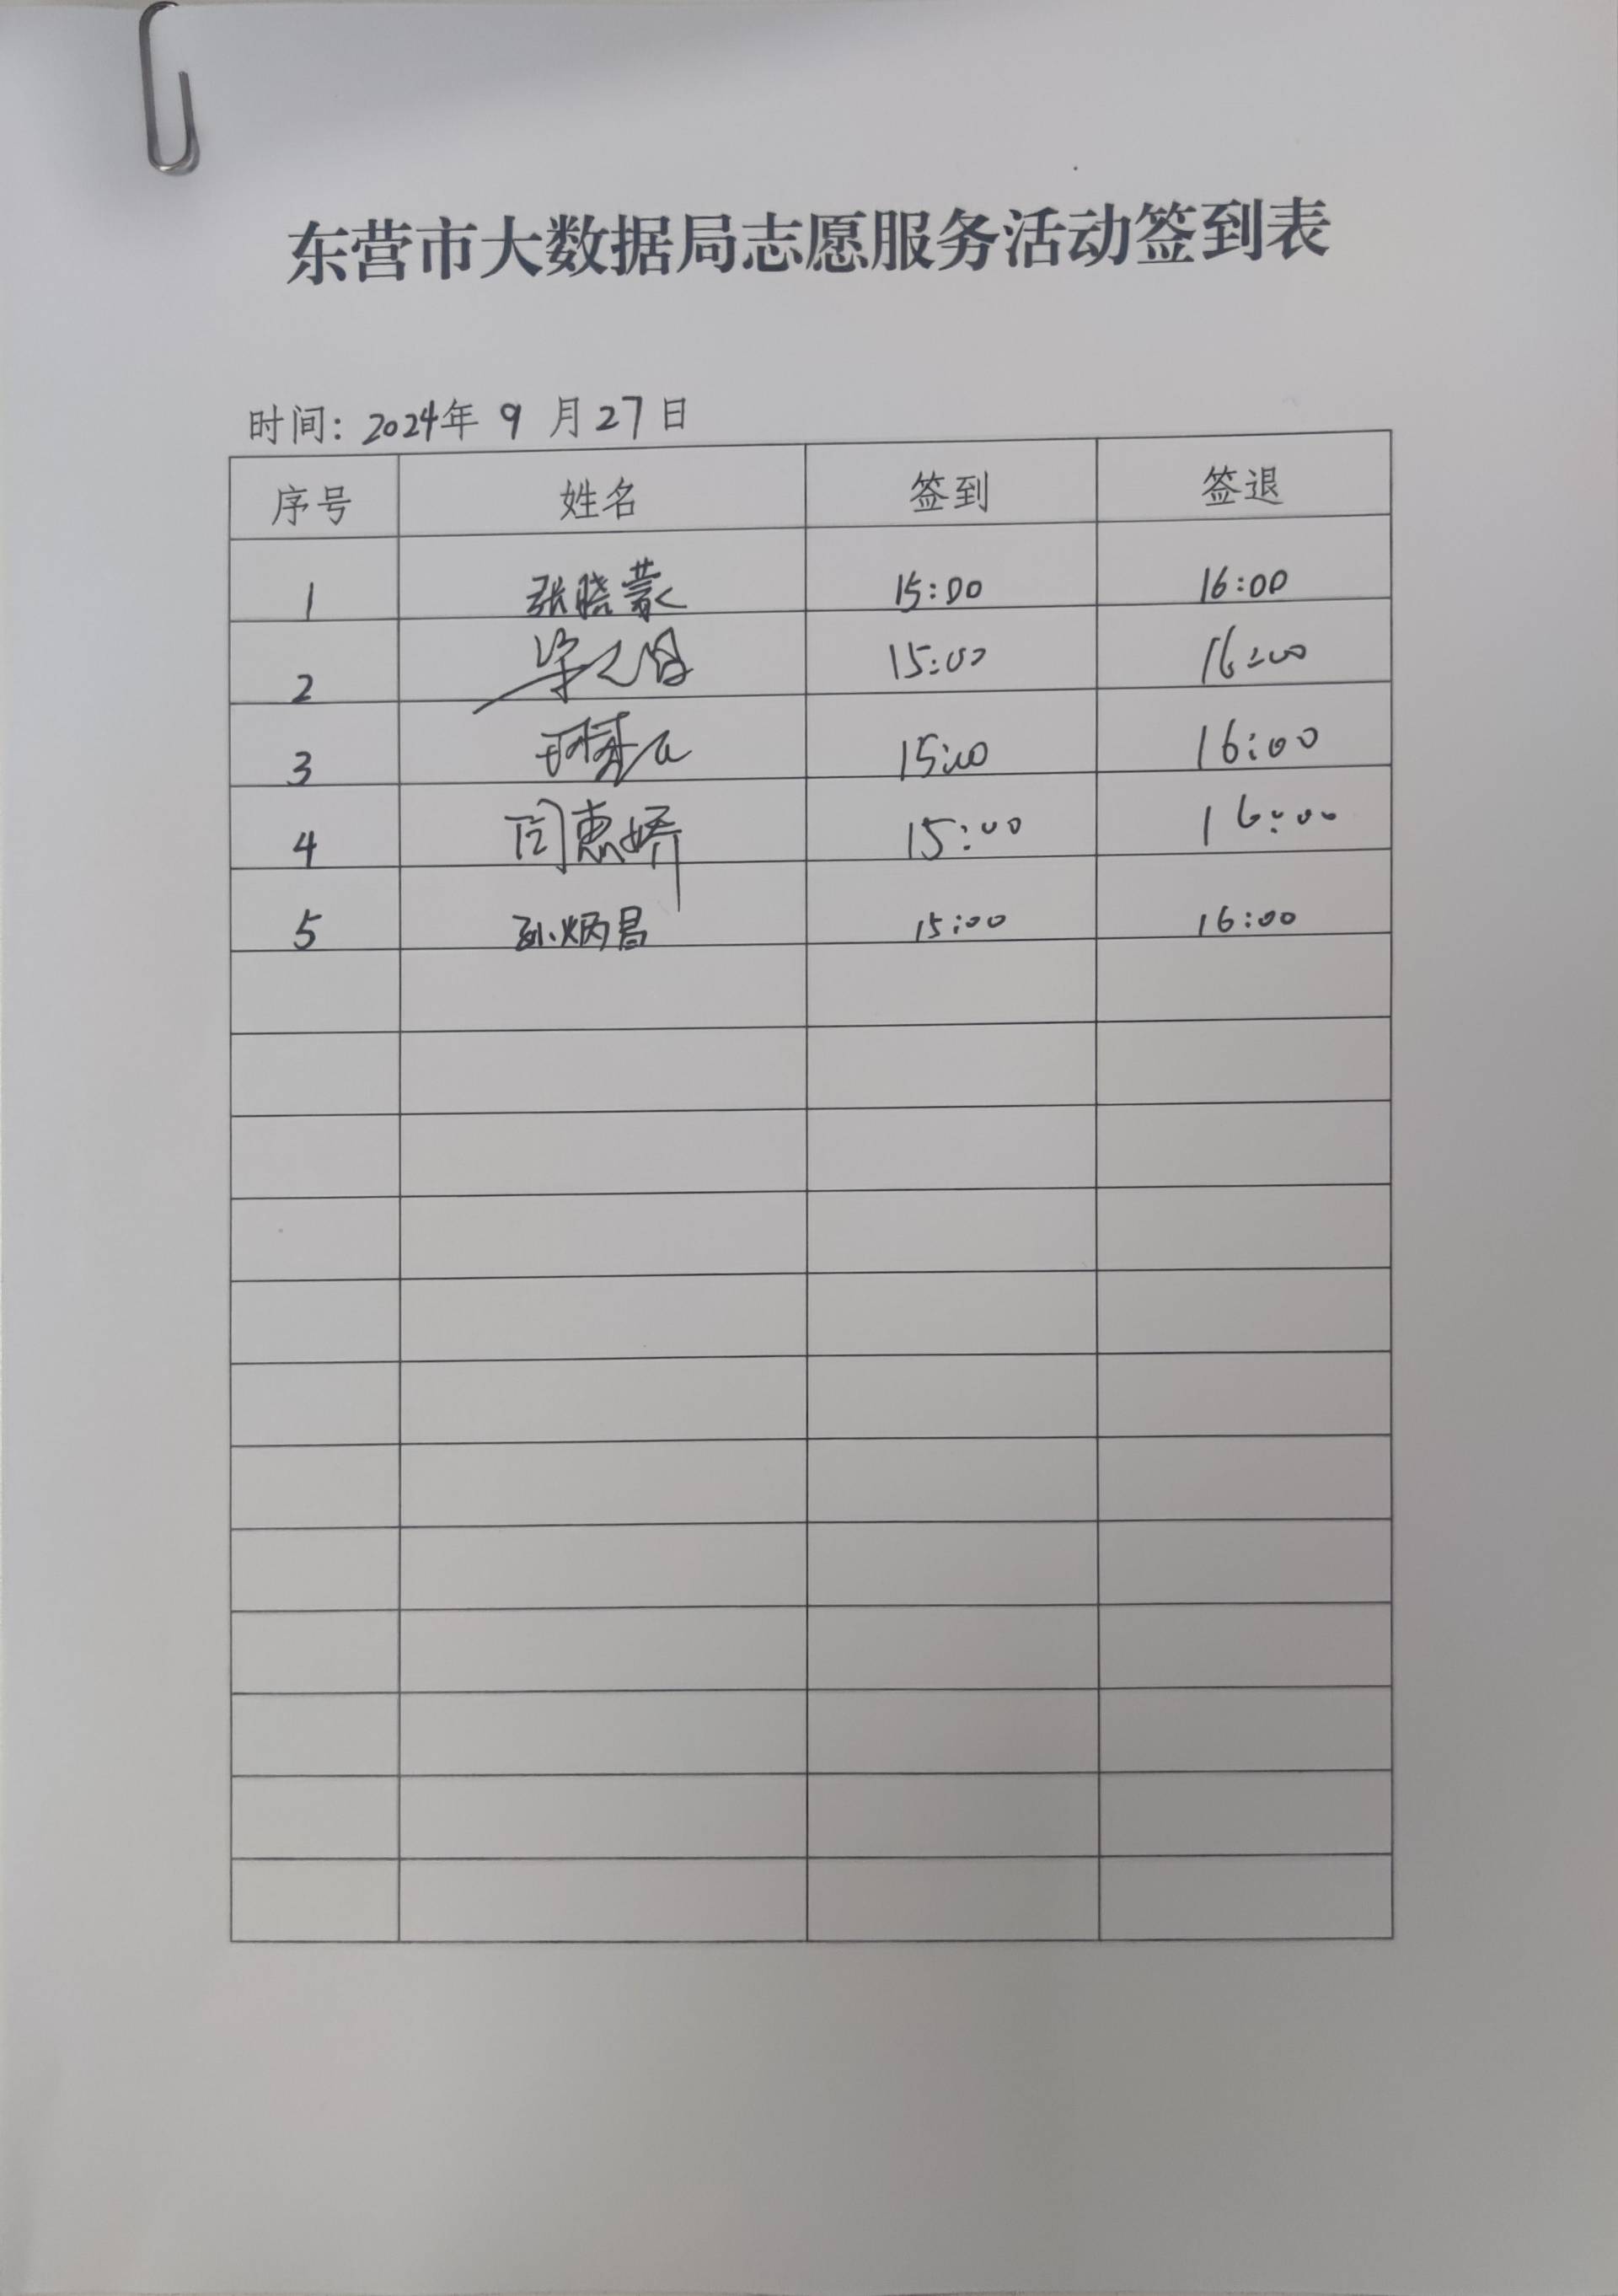 东营市大数据局志愿服务活动签到表
时间: 2024年 9 月 27 日
序号 姓名 签到 签退
1 张晓蒙 15:00 16:00
2 15:00 16:00
3 15:00 16:00
4 闫惠娇 15:00 16:00
5 孙炳昌 15:00 16:00